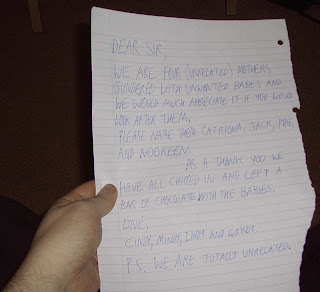 DEAR SIR,
WE ARE FOUR (UNRELATED) MOTHERS,
WITH UNWANTED BABIES AND
WE WOULD MUCH APPRECIATE IT IF YOU WOULD
LOOK AFTER THEM.
PLEASE NAME THEM CATRIONA, JACK,
AND NOGREEN.
AS A THANK YOU WE
HAVE ALL CHIPPED IN AND LEFT A
BAR OF CHOCOLATE WITH THE BABIES.
LOVE,
CINDY, MINDY, LINDY AND
P.S. WE ARE TOTALLY UNRELATED.